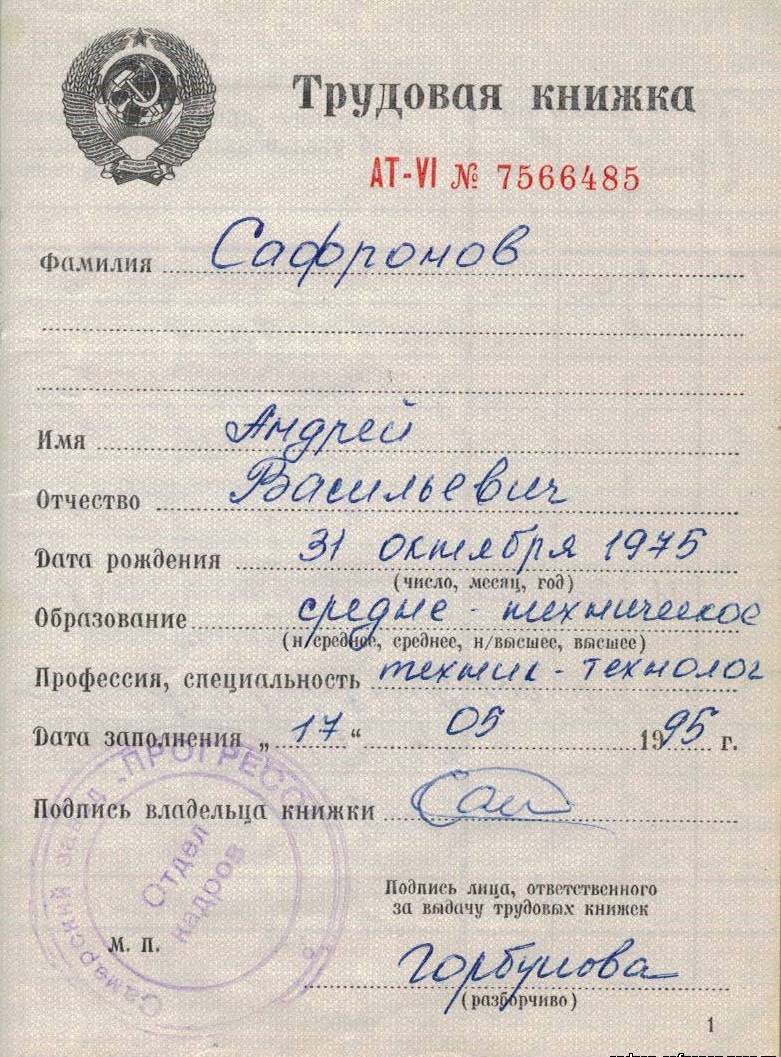 Трудовая книжка
АТ-VI № 7566485
Фамилия Сафронов
Имя Андрей
Отчество Васильевич
Дата рождения 31 октября 1975
(число, месяц, год)
Образование средне - техническое
(н/среднее, среднее, н/высшее, высшее)
Профессия, специальность техник - технолог
Дата заполнения „ 17 “ 05 1995 г.
Подпись владельца книжки
Самарский завод „ПРОГРЕСС“
Отдел
кадров
Подпись лица, ответственного
за выдачу трудовых книжек
М. П.
Горбунова
(разборчиво)
1